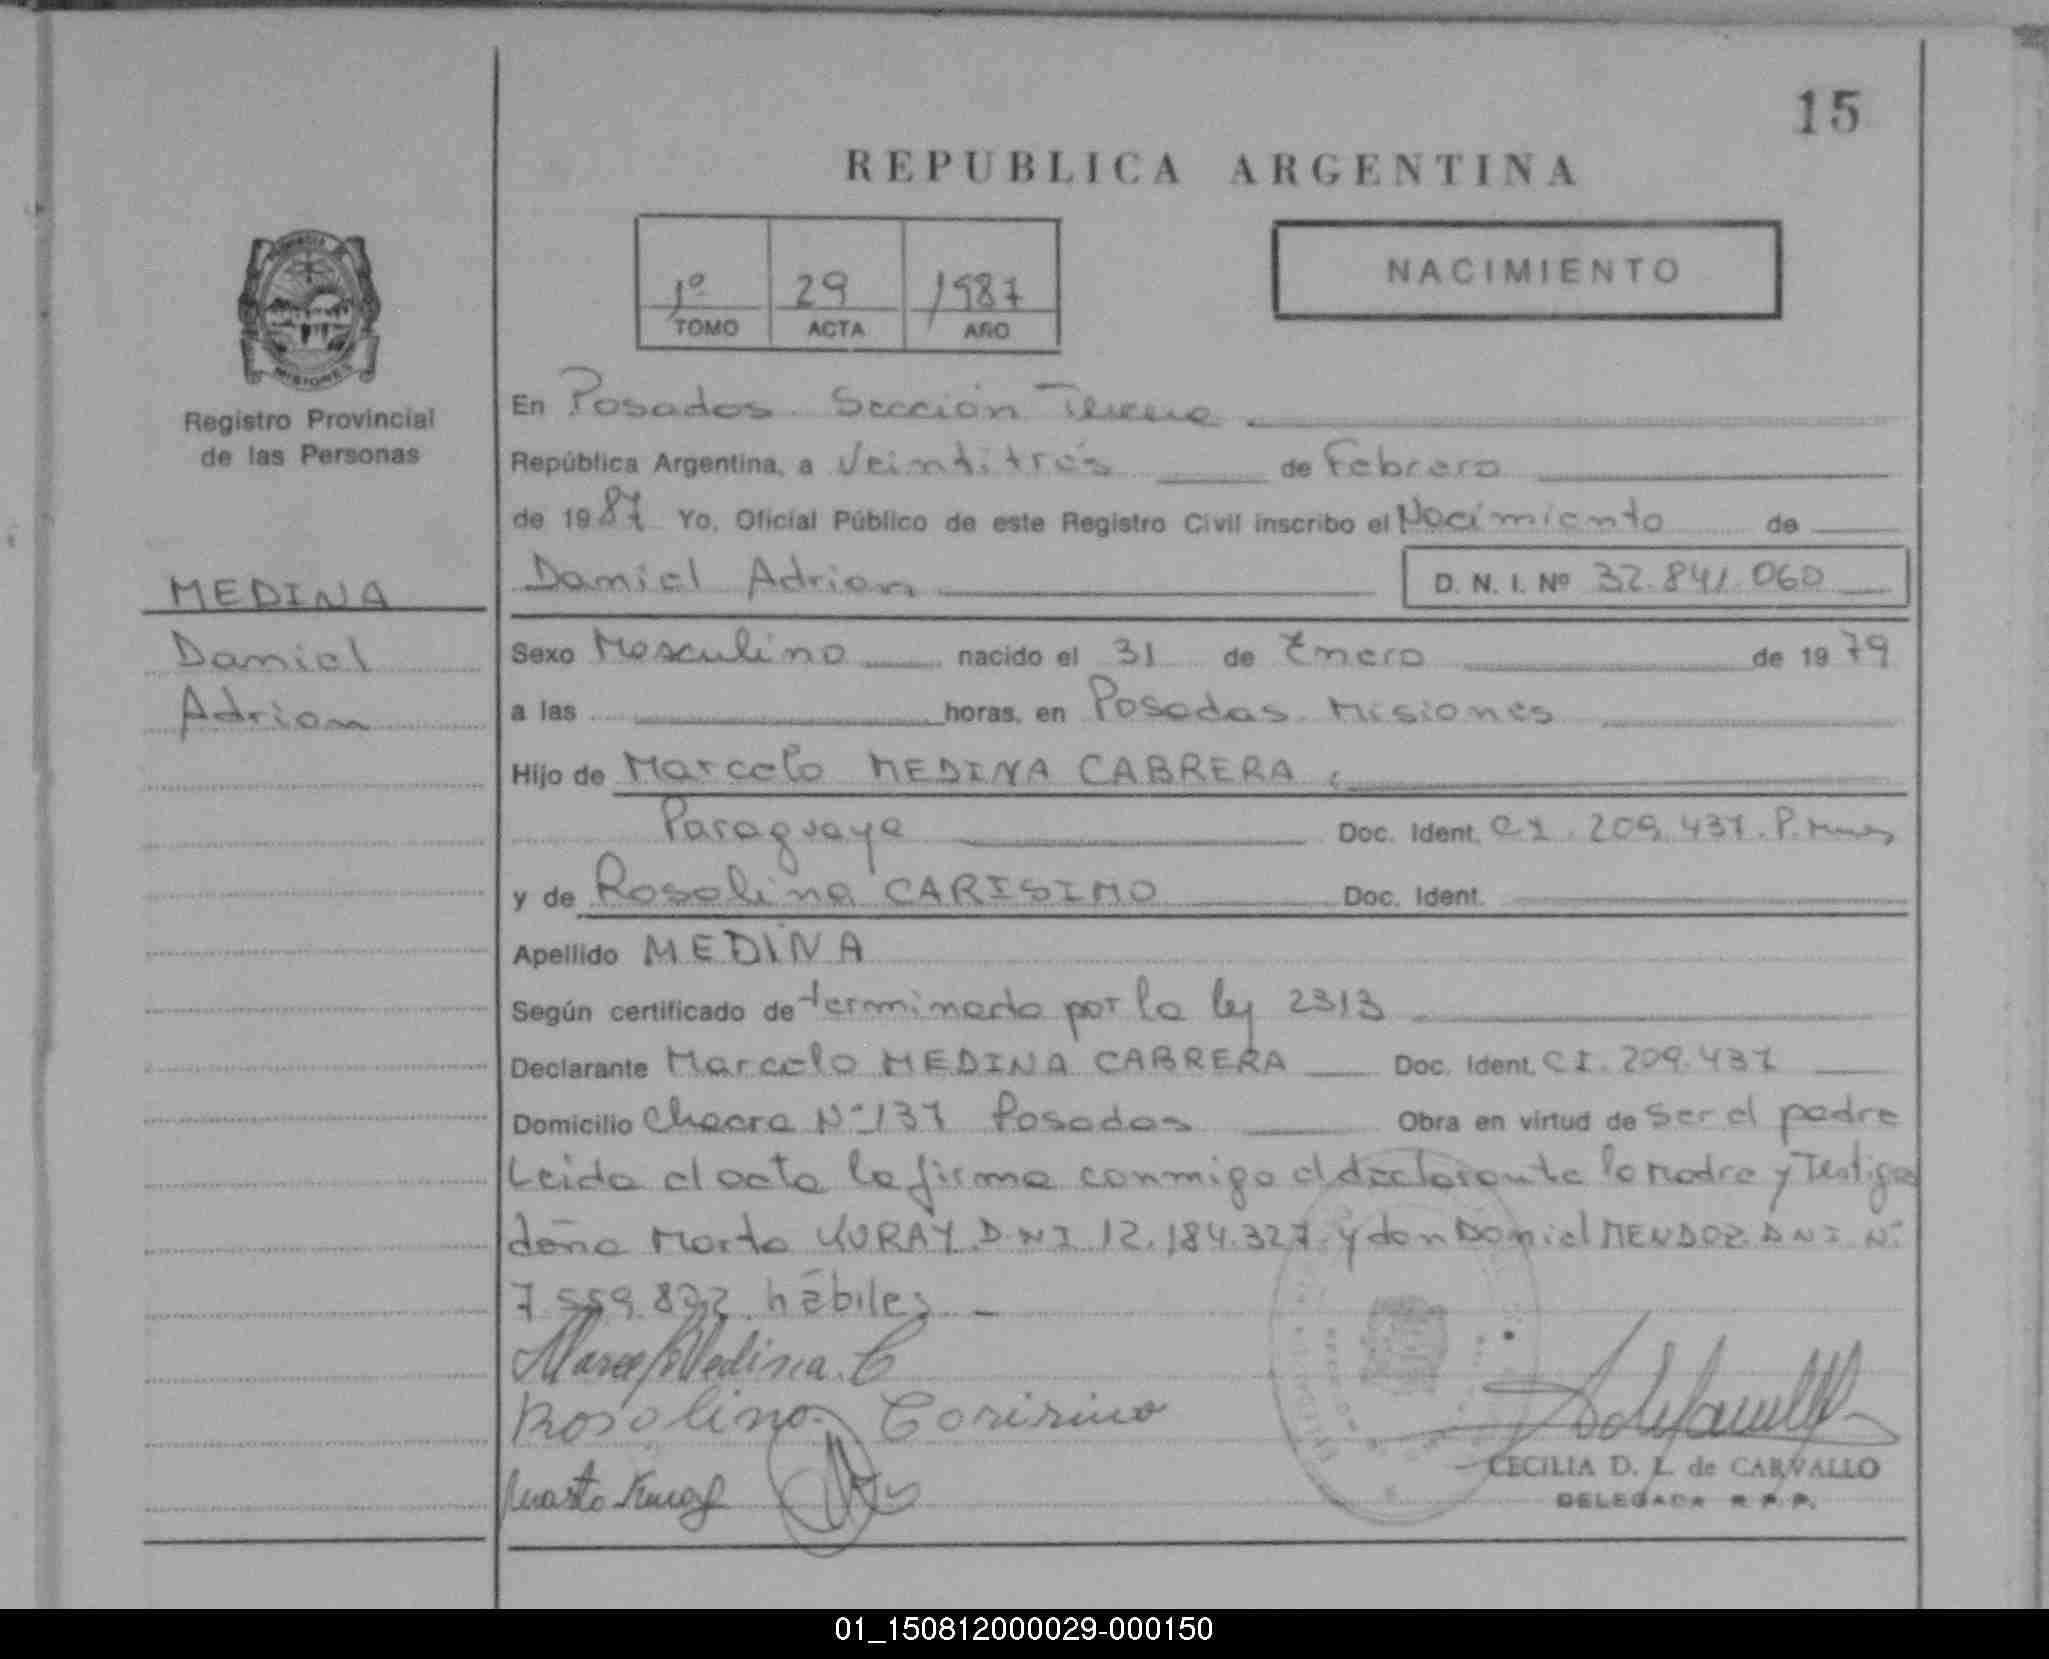 15
REPUBLICA ARGENTINA
1º 29 1987
TOMO ACTA AÑO
NACIMIENTO
MISIONES
Registro Provincial
de las Personas
MEDINA
Daniel
Adrian
En Posadas Sección Tercera
República Argentina, a Veintitrés de Febrero
de 1987 Yo, Oficial Público de este Registro Civil inscribo el Nacimiento de
Daniel Adrian D. N. I. Nº 32.841.060
Sexo Masculino nacido el 31 de Enero de 1979
a las horas, en Posadas Misiones
Hijo de Marcelo MEDINA CABRERA
Paraguaya Doc. Ident. CI 209.437. P.
y de Rosalina CARISIMO Doc. Ident.
Apellido MEDINA
Según certificado de terminado por la ley 2313
Declarante Marcelo MEDINA CABRERA Doc. Ident. CI. 209.437
Domicilio Chacra Nº 137 Posadas Obra en virtud de ser el padre
Leida el acta la firma conmigo el declarante la Madre y Testigos
doña Marta KURAY D N I 12.184.327 y don Daniel MENDOZ D N I Nº
7.559.872 hábiles
Marcelo Medina C
Rosolina Corisimo
CECILIA D. L. de CARVALLO
DELEGADA R. P. P.
01_150812000029-000150